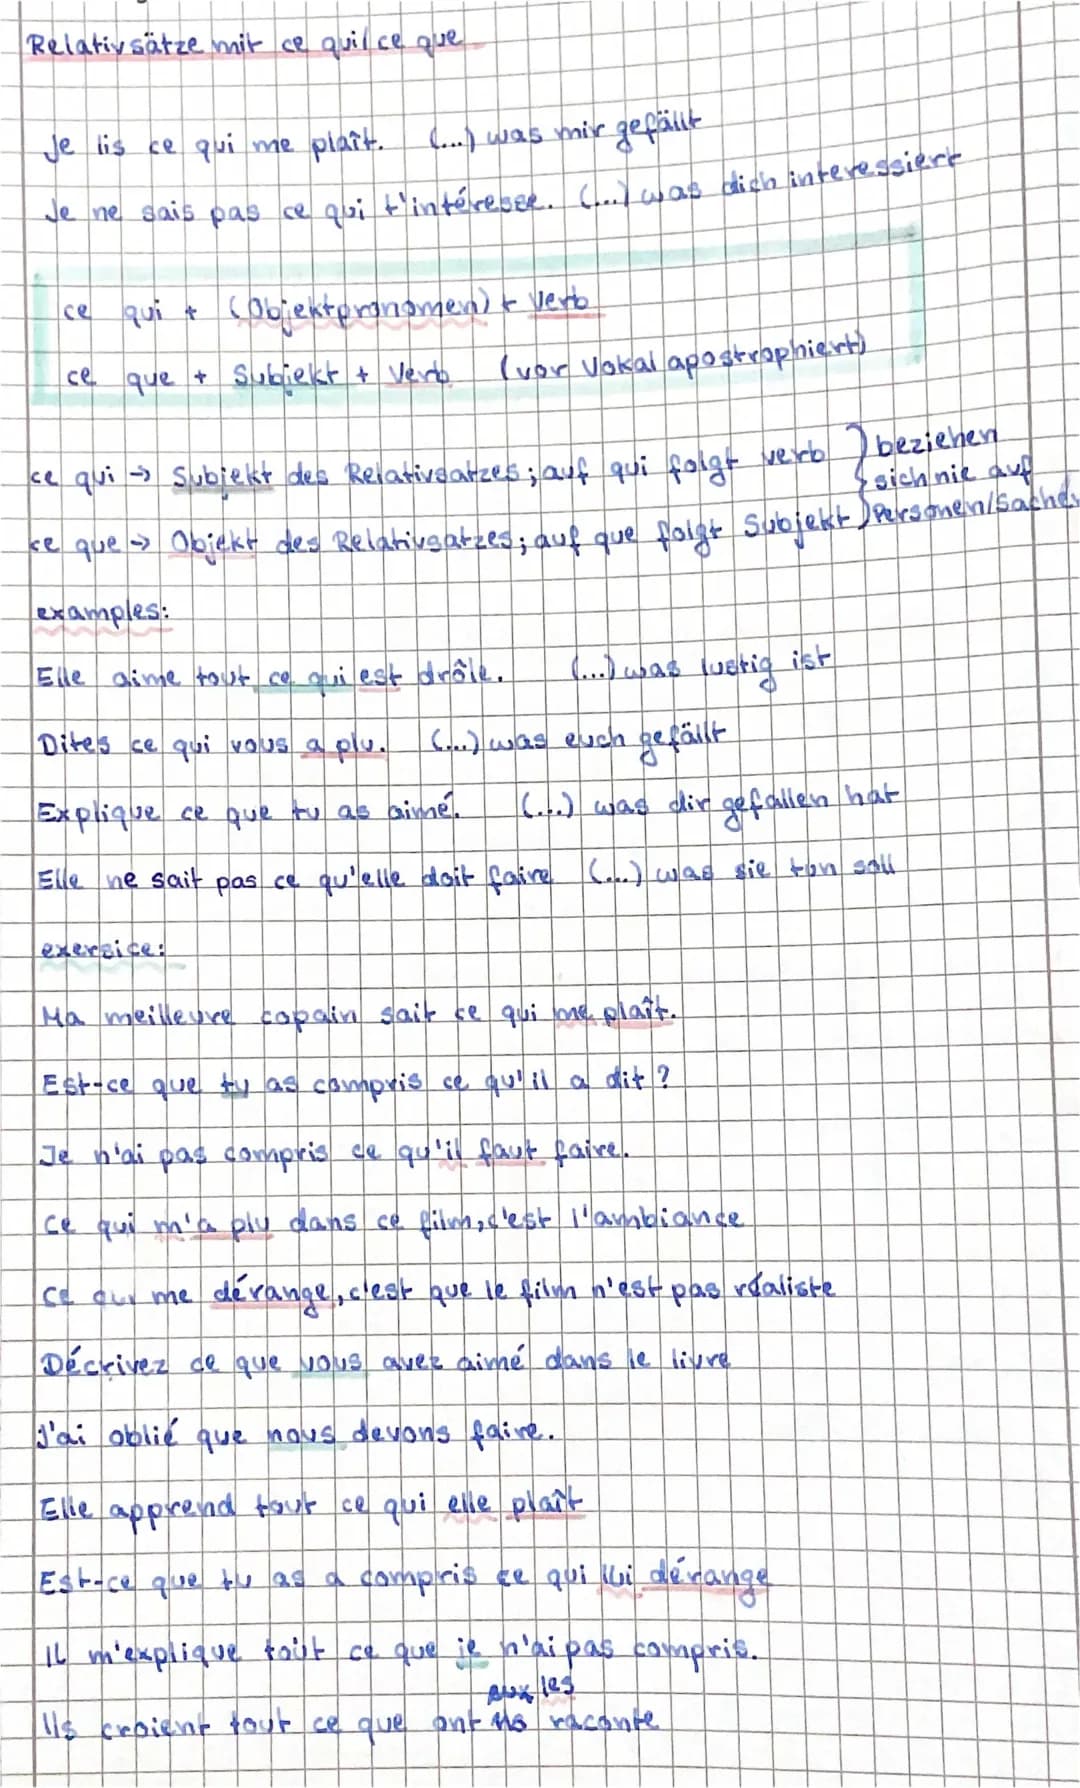 Relativsätze mit ce qui/ce que
Je lis ce qui me plaît. (...) was mir gefällt
Je ne sais pas ce qui t'intéresse. (...) was dich interessiert
ce qui + (Objektpronomen) + Verb
ce que + Subjekt + Verb (vor Vokal apostrophiert)
ce qui → Subjekt des Relativsatzes; auf qui folgt verb } beziehen sich nie auf Personen/Sachen
ce que → Objekt des Relativsatzes; auf que folgt Subjekt
examples:
Elle aime tout ce qui est drôle. (...) was lustig ist
Dites ce qui vous a plu. (...) was euch gefällt
Explique ce que tu as aimé. (...) was dir gefallen hat
Elle ne sait pas ce qu'elle doit faire (...) was sie tun soll
exersice:
Ma meilleure copain sait ce qui me plaît.
Est-ce que tu as compris ce qu'il a dit?
Je n'ai pas compris ce qu'il faut faire.
Ce qui m'a plu dans ce film, c'est l'ambiance
Ce qui me dérange, c'est que le film n'est pas réaliste
Décrivez ce que vous avez aimé dans le livre
J'ai oblié que nous devons faire.
Elle apprend tout ce qui elle plaît
Est-ce que tu as a compris ce qui lui dérange
Il m'explique tout ce que je n'ai pas compris.
les
Ils croient tout ce que ont raconte